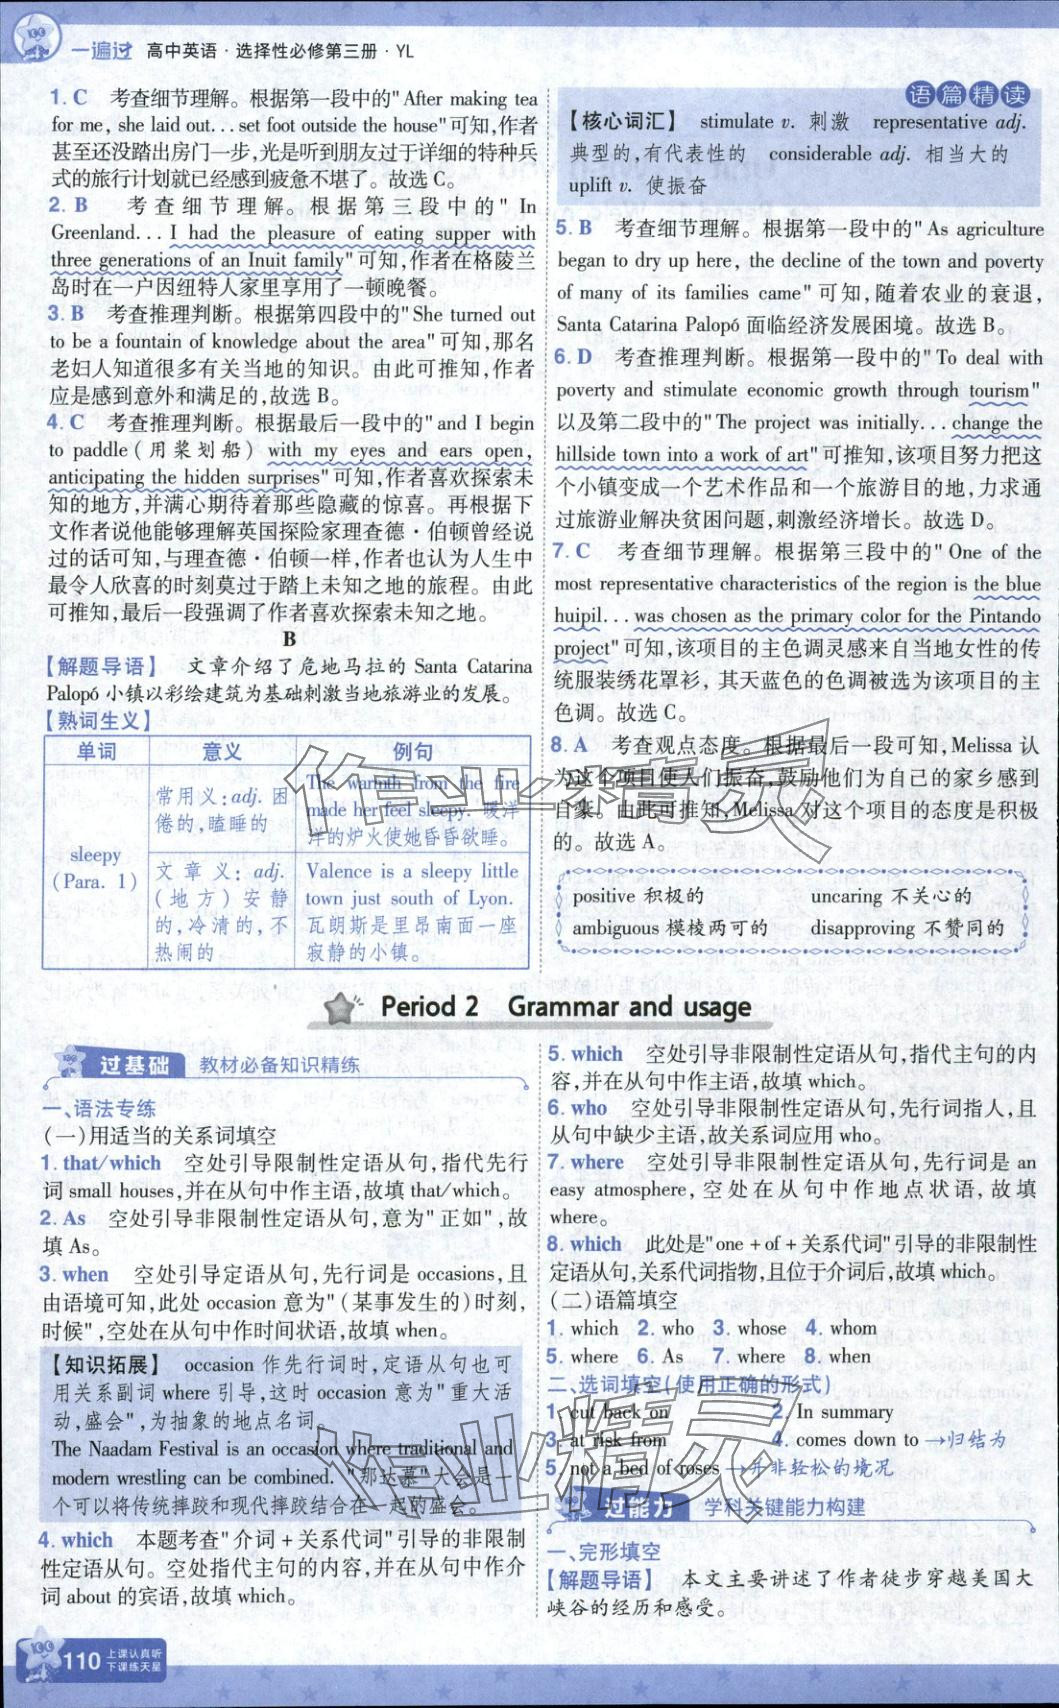 一遍过 高中英语·选择性必修第三册·YL
1. C 考查细节理解。根据第一段中的"After making tea
for me, she laid out... set foot outside the house"可知,作者
甚至还没踏出房门一步,光是听到朋友过于详细的特种兵
式的旅行计划就已经感到疲惫不堪了。故选 C。
2. B 考查细节理解。根据第三段中的"In
Greenland... I had the pleasure of eating supper with
three generations of an Inuit family"可知,作者在格陵兰
岛时在一户因纽特人家里享用了一顿晚餐。
3. B 考查推理判断。根据第四段中的"She turned out
to be a fountain of knowledge about the area"可知,那名
老妇人知道很多有关当地的知识。由此可推知,作者
应是感到意外和满足的,故选 B。
4. C 考查推理判断。根据最后一段中的"and I begin
to paddle(用桨划船) with my eyes and ears open,
anticipating the hidden surprises"可知,作者喜欢探索未
知的地方,并满心期待着那些隐藏的惊喜。再根据下
文作者说他能够理解英国探险家理查德·伯顿曾经说
过的话可知,与理查德·伯顿一样,作者也认为人生中
最令人欣喜的时刻莫过于踏上未知之地的旅程。由此
可推知,最后一段强调了作者喜欢探索未知之地。
B
【解题导语】 文章介绍了危地马拉的 Santa Catarina
Palopó 小镇以彩绘建筑为基础刺激当地旅游业的发展。
【熟词生义】
单词 意义 例句
sleepy
(Para. 1)
常用义:adj. 困
倦的,瞌睡的
The warmth from the fire
made her feel sleepy. 暖洋
洋的炉火使她昏昏欲睡。
文章义:adj.
(地方)安静
的,冷清的,不
热闹的
Valence is a sleepy little
town just south of Lyon.
瓦朗斯是里昂南面一座
寂静的小镇。
语篇精读
【核心词汇】 stimulate v. 刺激 representative adj.
典型的,有代表性的 considerable adj. 相当大的
uplift v. 使振奋
5. B 考查细节理解。根据第一段中的"As agriculture
began to dry up here, the decline of the town and poverty
of many of its families came"可知,随着农业的衰退,
Santa Catarina Palopó 面临经济发展困境。故选 B。
6. D 考查推理判断。根据第一段中的"To deal with
poverty and stimulate economic growth through tourism"
以及第二段中的"The project was initially... change the
hillside town into a work of art"可推知,该项目努力把这
个小镇变成一个艺术作品和一个旅游目的地,力求通
过旅游业解决贫困问题,刺激经济增长。故选 D。
7. C 考查细节理解。根据第三段中的"One of the
most representative characteristics of the region is the blue
huipil... was chosen as the primary color for the Pintando
project"可知,该项目的主色调灵感来自当地女性的传
统服装绣花罩衫,其天蓝色的色调被选为该项目的主
色调。故选 C。
8. A 考查观点态度。根据最后一段可知,Melissa 认
为这个项目使人们振奋,鼓励他们为自己的家乡感到
自豪。由此可推知,Melissa 对这个项目的态度是积极
的。故选 A。
positive 积极的 uncaring 不关心的
ambiguous 模棱两可的 disapproving 不赞同的
Period 2 Grammar and usage
过基础 教材必备知识精练
一、语法专练
(一)用适当的关系词填空
1. that/which 空处引导限制性定语从句,指代先行
词 small houses,并在从句中作主语,故填 that/which。
2. As 空处引导非限制性定语从句,意为"正如",故
填 As。
3. when 空处引导定语从句,先行词是 occasions,且
由语境可知,此处 occasion 意为"(某事发生的)时刻,
时候",空处在从句中作时间状语,故填 when。
【知识拓展】 occasion 作先行词时,定语从句也可
用关系副词 where 引导,这时 occasion 意为"重大活
动,盛会",为抽象的地点名词。
The Naadam Festival is an occasion where traditional and
modern wrestling can be combined. "那达慕"大会是一
个可以将传统摔跤和现代摔跤结合在一起的盛会。
4. which 本题考查"介词+关系代词"引导的非限制
性定语从句。空处指代主句的内容,并在从句中作介
词 about 的宾语,故填 which。
5. which 空处引导非限制性定语从句,指代主句的内
容,并在从句中作主语,故填 which。
6. who 空处引导非限制性定语从句,先行词指人,且
从句中缺少主语,故关系词应用 who。
7. where 空处引导非限制性定语从句,先行词是 an
easy atmosphere,空处在从句中作地点状语,故填
where。
8. which 此处是"one+of+关系代词"引导的非限制性
定语从句,关系代词指物,且位于介词后,故填 which。
(二)语篇填空
1. which 2. who 3. whose 4. whom
5. where 6. As 7. where 8. when
二、选词填空(使用正确的形式)
1. cut back on 2. In summary
3. at risk from 4. comes down to →归结为
5. not a bed of roses →并非轻松的境况
过能力 学科关键能力构建
一、完形填空
【解题导语】 本文主要讲述了作者徒步穿越美国大
峡谷的经历和感受。
110 上课认真听
下课练天星
作业精灵
作业精灵